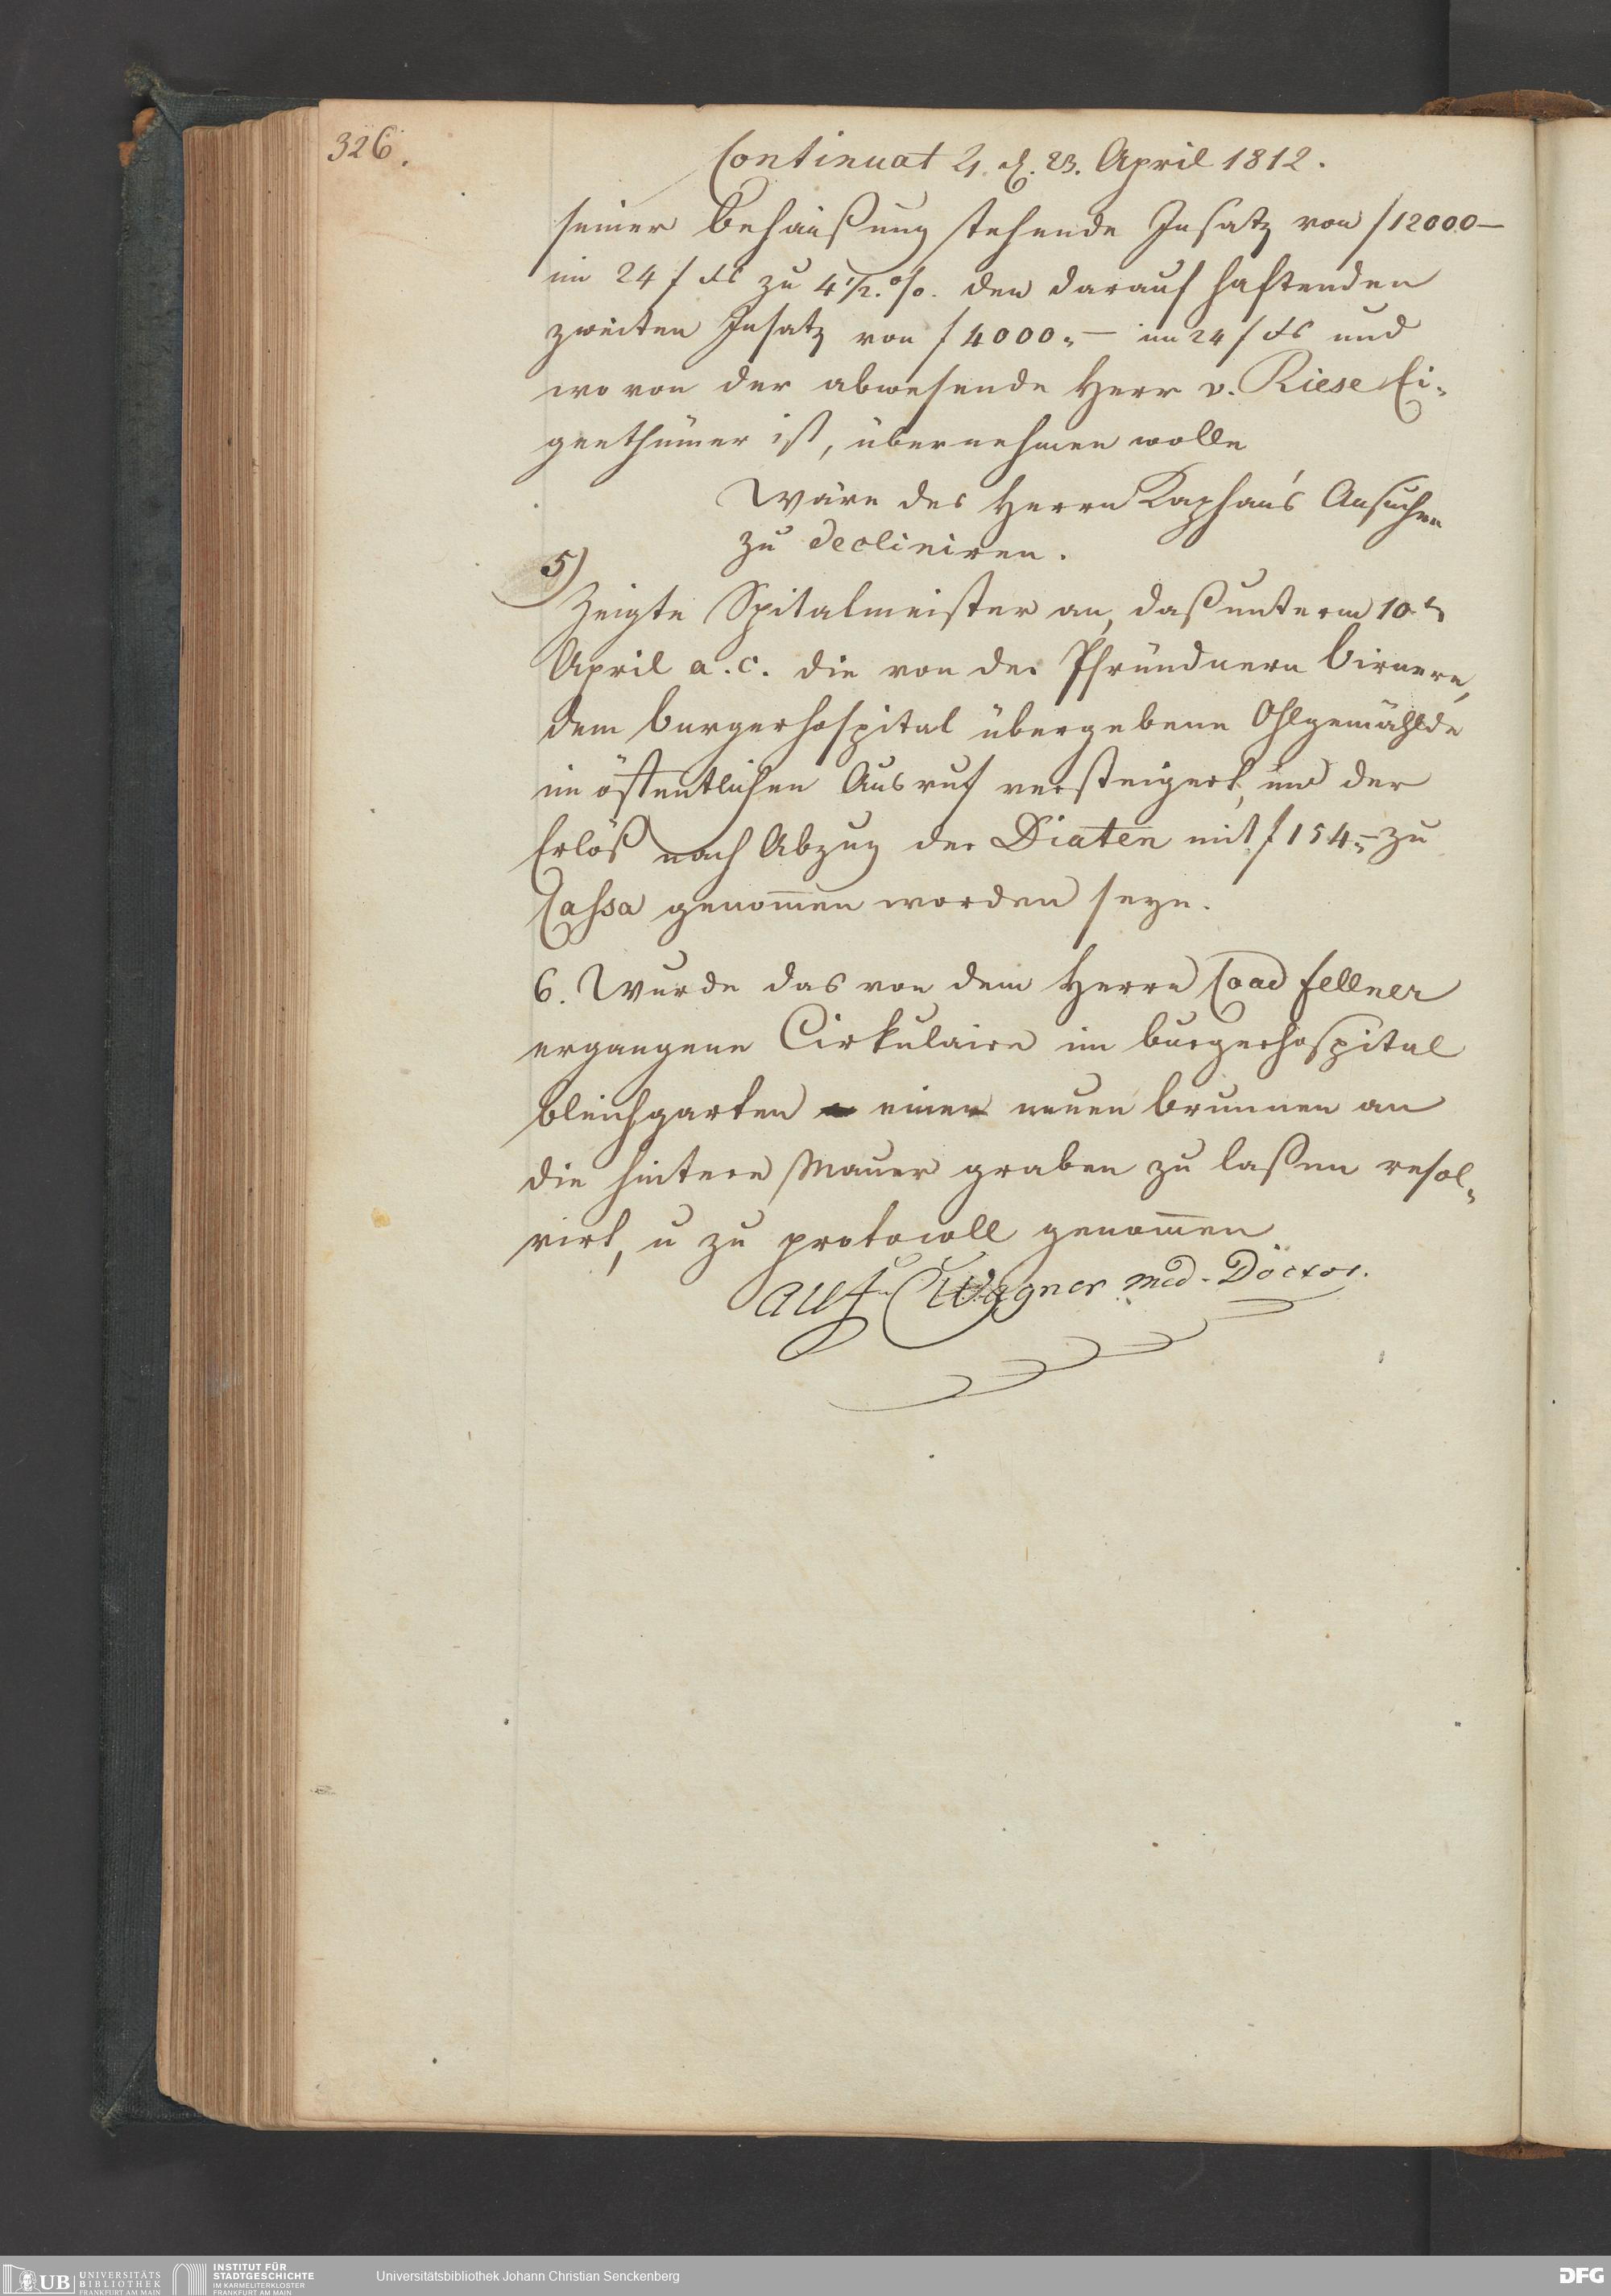 326.
Continuat ♃. d. 23. April 1812.
seiner Behaußung stehende Insatz von f 12000 —
im 24 f fs zu 4 1/2. %. den darauf haftenden
zweiten Insatz von f 4000. — im 24 f fs und
wovon der abwesende Herr v. Riese Ei-
genthümer ist, übernehmen wolle
Wäre des Herrn Kaphan's Ansuchen
zu decliniren.
5)
Zeigte Spitalmeister an, daß unterm 10t
April a. c. die von der Pfründnern Birnere,
dem burgerhospital übergebene Ohlgemählde
im öffentlichen Ausruf versteigert, und der
Erlöß nach Abzug der Diaten mit f 154.- zu
Cassa genom̄en worden seye.
6. Wurde das von dem Herrn Coad Fellner
ergangene Cirkulaire im burgerhospital
bleichgarten einen neuen brunnen an
die hintere Mauer graben zu laßen resol-
virt, u zu protocoll genom̄en
Wagner med. Doctor.
UB UNIVERSITÄTS
BIBLIOTHEK
FRANKFURT AM MAIN
INSTITUT FÜR
STADTGESCHICHTE
IM KARMELITERKLOSTER
FRANKFURT AM MAIN
Universitätsbibliothek Johann Christian Senckenberg
DFG